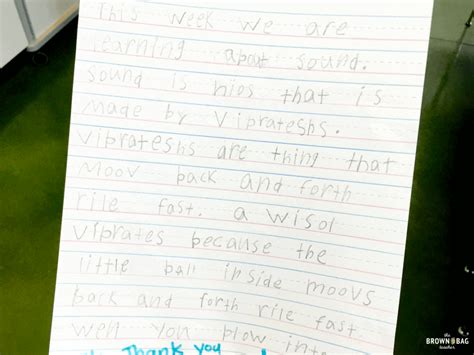 This week we are
learning about sound.
sound is nios that is
made by vibrateshs.
vibrateshs are thing that
moov back and forth
rile fast. a wisol
vibrates because the
little ball inside moovs
back and forth rile fast.
wen you blow into
Thank you
the
BROWN BAG
teacher